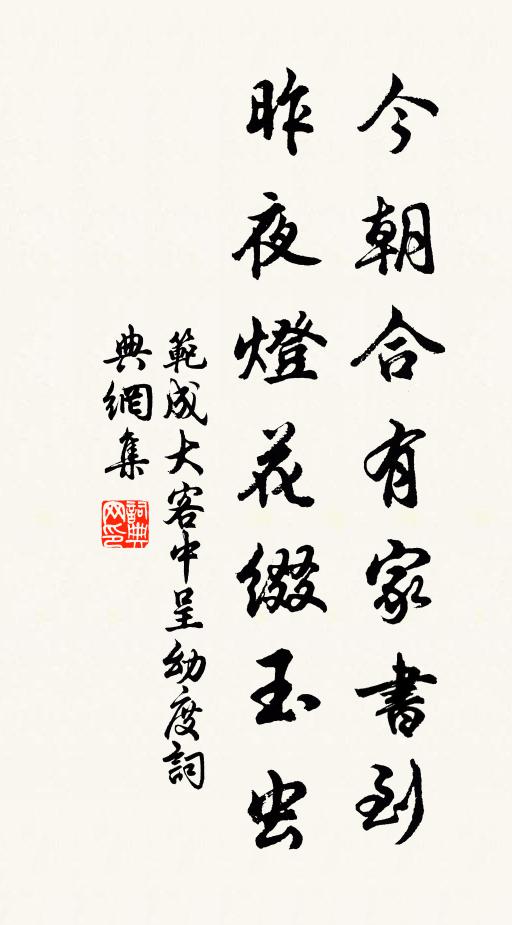 今朝合有家書到
昨夜燈花綴玉虫
範成大客中呈幼度詞
典網集
詞典网印